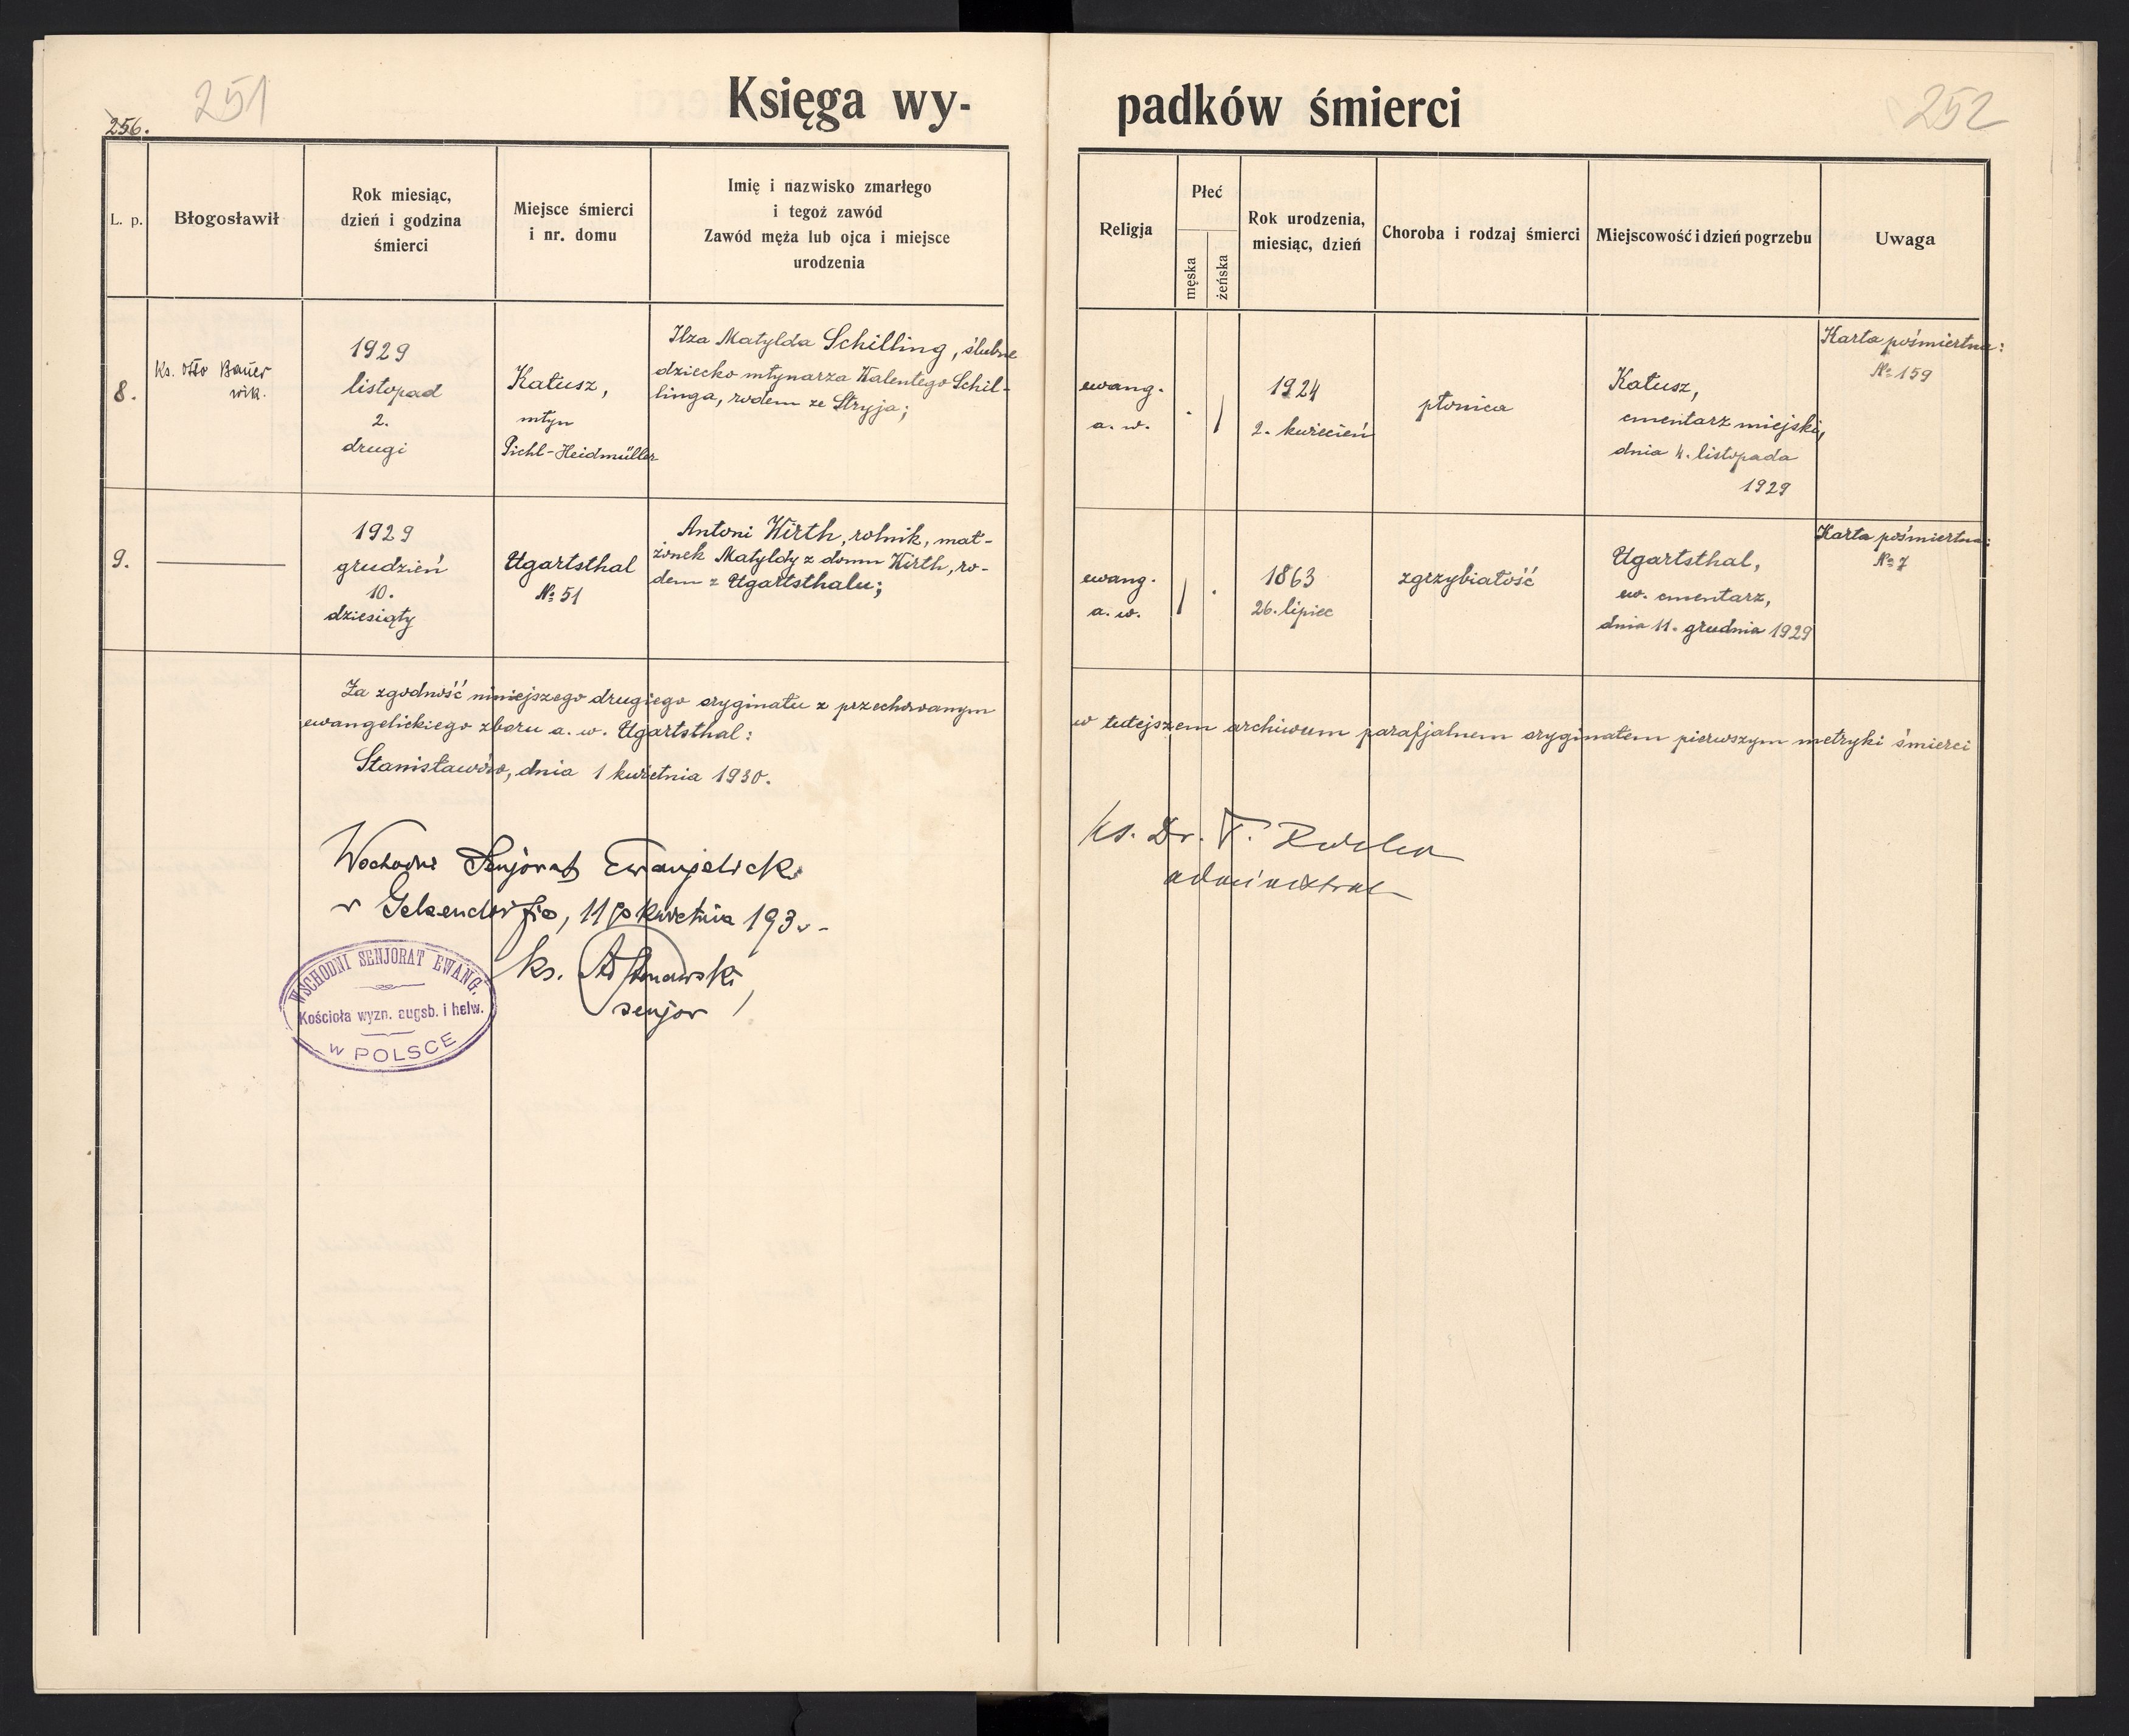 251
256.
Księga wy-
L. p.
Błogosławił
Rok miesiąc,
dzień i godzina
śmierci
Miejsce śmierci
i nr. domu
Imię i nazwisko zmarłego
i tegoż zawód
Zawód męża lub ojca i miejsce
urodzenia
8.
Ks. Otto Bauer
wik.
1929
listopad
2.
drugi
Kałusz,
młyn
Pichl-Heidmüller
Ilza Matylda Schilling, ślubne
dziecko młynarza Walentego Schil-
linga, rodem ze Stryja;
9.
1929
grudzień
10.
dziesiąty
Ugartsthal
№ 51
Antoni Wirth, rolnik, mał-
żonek Matyldy z domu Wirth, ro-
dem z Ugartsthalu;
Za zgodność niniejszego drugiego oryginału z przechowanym
ewangelickiego zboru a. w. Ugartsthal:
Stanisławów, dnia 1 kwietnia 1930.
Wschodni Senjorat Ewangelicki
w Gelsendorfie, 11 go kwietnia 1930.-
ks.
senjor
WSCHODNI SENJORAT EWANG.
Kościoła wyzn. augsb. i helw.
w POLSCE
padków śmierci
252
Religja
Płeć
męska
żeńska
Rok urodzenia,
miesiąc, dzień
Choroba i rodzaj śmierci
Miejscowość i dzień pogrzebu
Uwaga
ewang.
a. w.
1924
2. kwiecień
płonica
Kałusz,
cmentarz miejski,
dnia 4. listopada
1929
Karta pośmiertna:
№ 159
ewang.
a. w.
1863
26. lipiec
zgrzybiałość
Ugartsthal,
ew. cmentarz,
dnia 11. grudnia 1929
Karta pośmiertna:
№ 7
w tutejszem archiwum parafjalnem oryginałem pierwszym metryki śmierci
Ks. Dr. F.